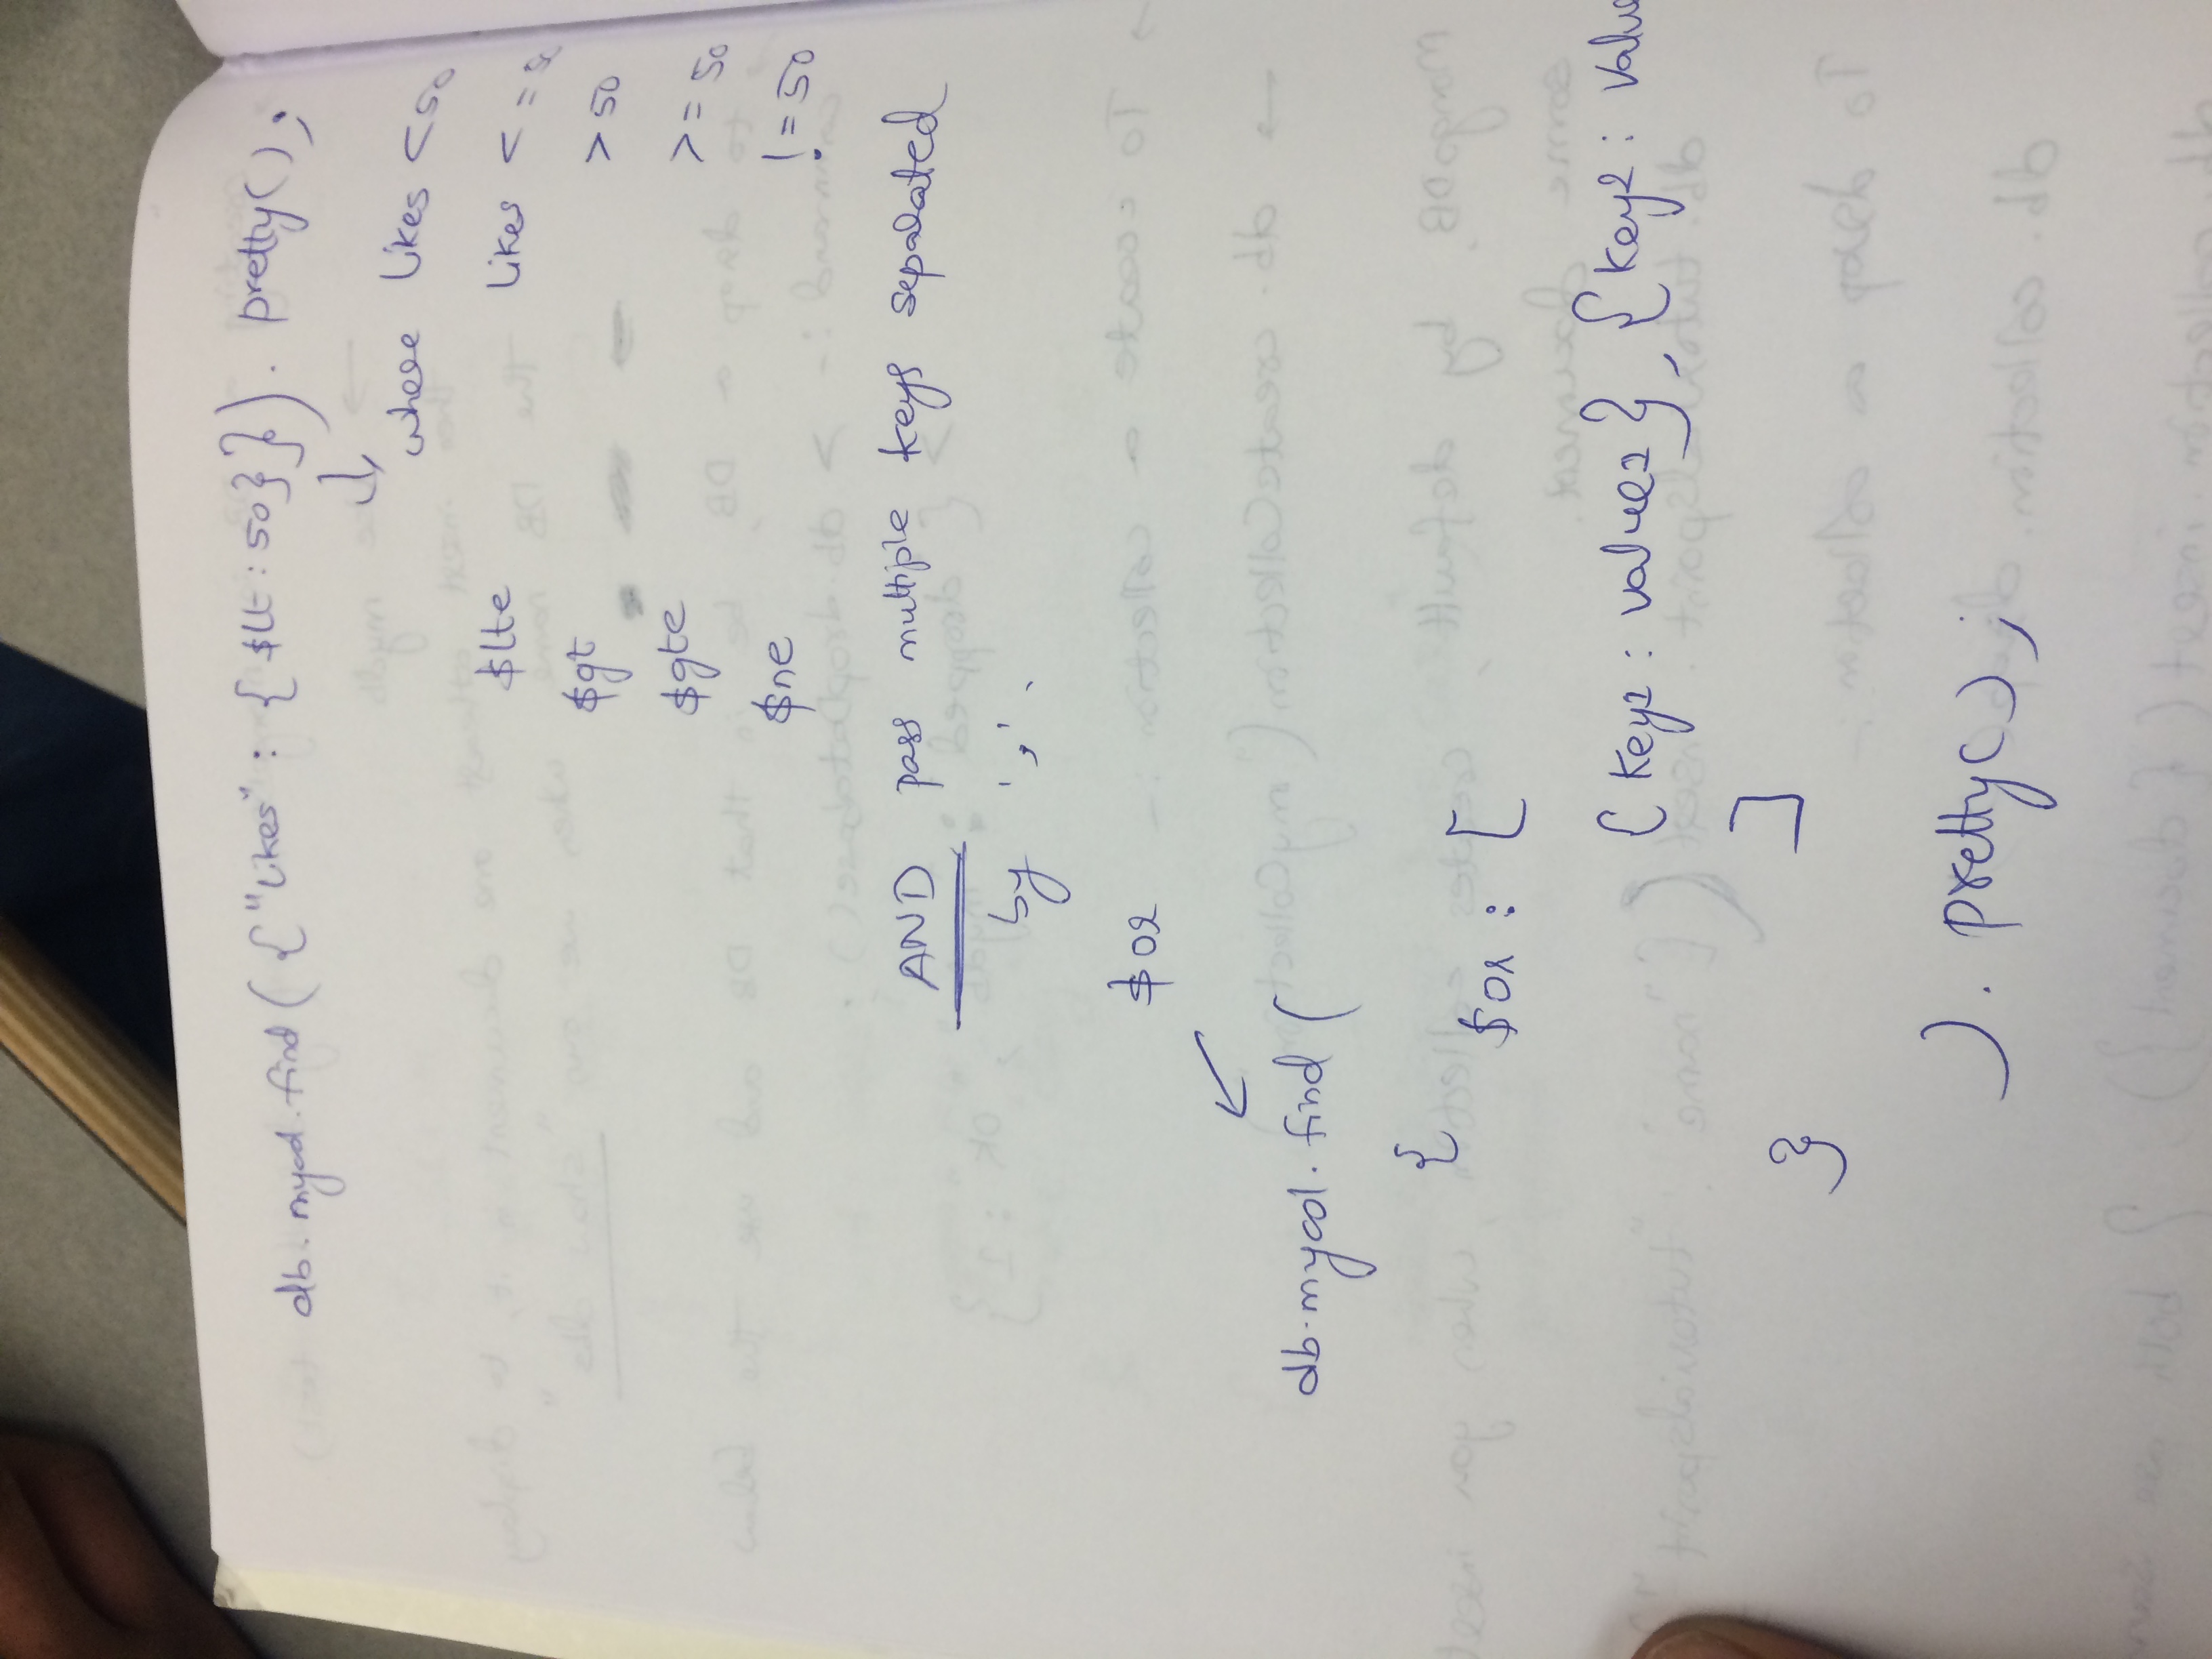 db.mycol.find({"likes" : { $lt : 50}}). pretty();
↓
where likes <50
$lte likes <=
$gt >50
$gte >= 50
$ne != 50
AND pass multiple keys separated
by ','.
$or
↙
db.mycol.find(
{
$or : [
{key1 : value1}, {key2 : value
]
}
). pretty();